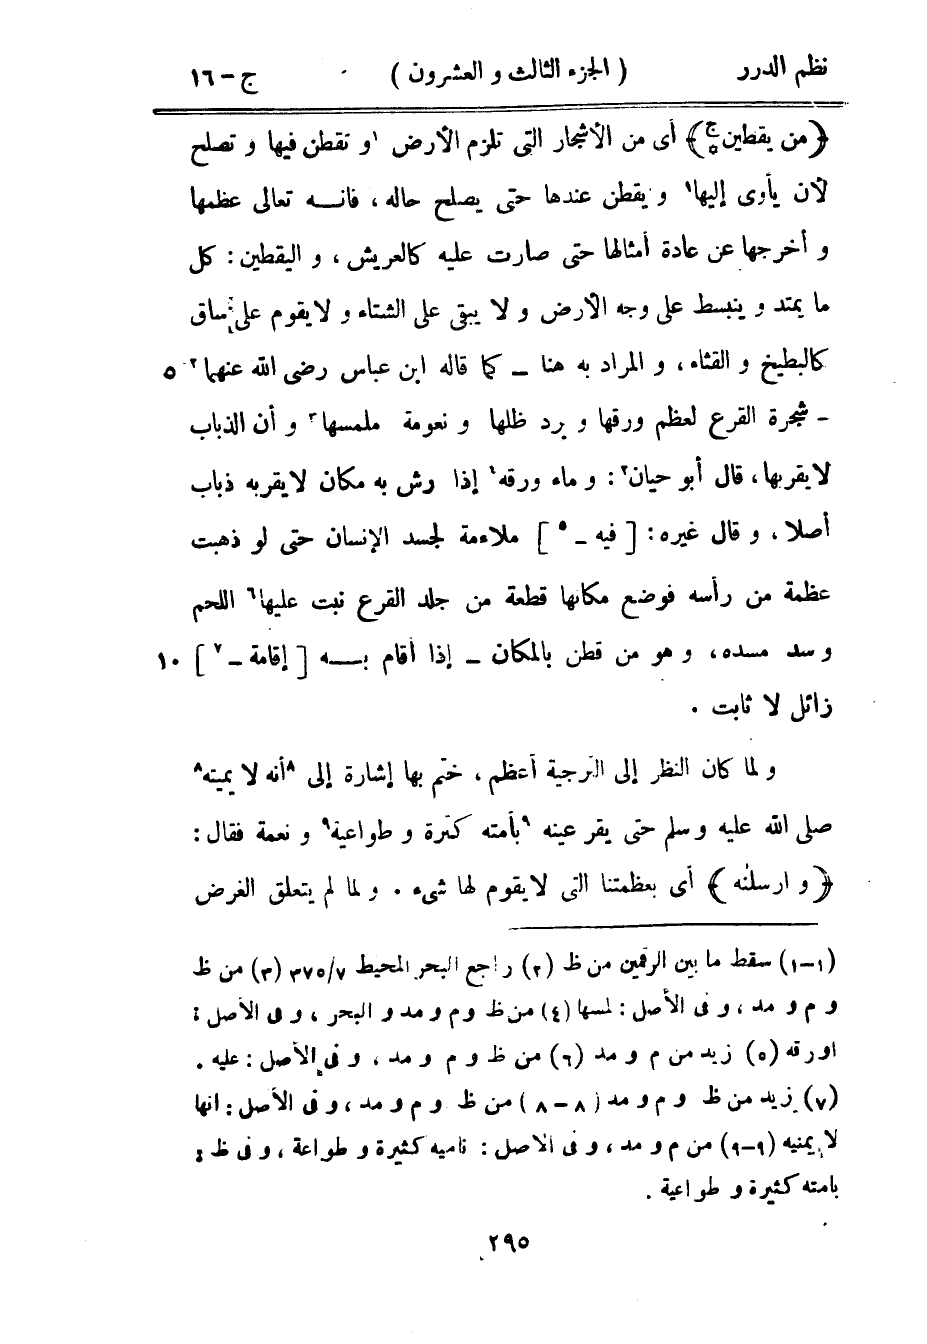 نظم الدرر ( الجزء الثالث و العشرون ) ج – ١٦
﴿ من يقطين ۚ ﴾ أى من الأشجار التى تلزم الأرض ١و تقطن فيها و تصلح
لأن يأوى إليها١ و يقطن عندها حتى يصلح حاله ، فانـه تعالى عظمها
و أخرجها عن عادة أمثالها حتى صارت عليه كالعريش ، و اليقطين : كل
ما يمتد و ينبسط على وجه الأرض و لا يبقى على الشتاء و لا يقوم على ساق
كالبطيخ و القثاء ، و المراد به هنا – كما قاله ابن عباس رضى الله عنهما ٢ ٥
– شجرة القرع لعظم ورقها و برد ظلها و نعومة ملمسها٣ و أن الذباب
لا يقربها ، قال أبو حيان٢ : و ماء ورقه٤ إذا رش به مكان لا يقربه ذباب
أصلا ، و قال غيره : [ فيه – ٥ ] ملاءمة لجسد الإنسان حتى لو ذهبت
عظمة من رأسه فوضع مكانها قطعة من جلد القرع نبت عليها٦ اللحم
و سد مسده ، و هو من قطن بالمكان – إذا أقام بـه [ إقامة – ٧ ] ١٠
زائل لا ثابت .
و لما كان النظر إلى الترجية أعظم ، ختم بها إشارة إلى ٨أنه لا يميته٨
صلى الله عليه و سلم حتى يقر عينه ٩بأمته كثرة و طواعية٩ و نعمة فقال :
﴿ و ارسلنٰه ﴾ أى بعظمتنا التى لا يقوم لها شىء . و لما لم يتعلق الغرض
(١–١) سقط ما بين الرقمين من ظ (٢) راجع البحر المحيط ٣٧٥/٧ (٣) من ظ
و م و مد ، و فى الأصل : لمسها (٤) من ظ و م و مد و البحر ، و فى الأصل :
اورقه (٥) زيد من م و مد (٦) من ظ و م و مد ، و فى الأصل : عليه .
(٧) زيد من ظ و م و مد (٨–٨) من ظ و م و مد ، و فى الأصل : انها
لا يمنيه (٩–٩) من م و مد ، و فى الاصل : ناميه كثيرة و طواعة ، و فى ظ :
بامته كثيرة و طواعية .
٢٩٥